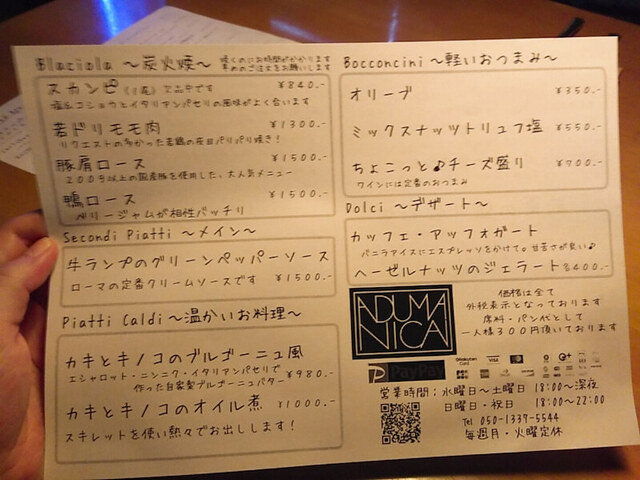 Blaciola 〜炭火焼〜
焼くのにお時間がかかります
早めのご注文をお願いします
スカンピ(1尾)
¥840.-
塩とコショウとイタリアンパセリの風味がよく合います
若ドリモモ肉
¥1300.-
リクエストの多かった若鶏の皮目パリパリ焼き!
豚肩ロース
¥1500.-
200g以上の国産豚を使用した、大人気メニュー
鴨ロース
¥1500.-
ベリージャムが相性バッチリ
Secondi Piatti 〜メイン〜
牛ランプのグリーンペッパーソース
ローマの定番クリームソースです
¥1500.-
Piatti Caldi 〜温かいお料理〜
カキとキノコのブルゴーニュ風
エシャロット・ニンニク・イタリアンパセリで
作った自家製ブルゴーニュバター
¥980.-
カキとキノコのオイル煮
¥1000.-
スキレットを使い熱々でお出しします!
Bocconcini 〜軽いおつまみ〜
オリーブ
¥350.-
ミックスナッツトリュフ塩
¥550.-
ちょこっと♪チーズ盛り
¥700.-
ワインには定番のおつまみ
Dolci 〜デザート〜
カッフェ・アッフォガート
バニラアイスにエスプレッソをかけて。甘苦さが良い♪
ヘーゼルナッツのジェラート
¥400.-
ADUMA
NICA
価格は全て
外税表示となっております
席料・パン代として
一人様300円頂いております
PayPay
VISA
営業時間:水曜日〜土曜日 18:00〜深夜
日曜日・祝日 18:00〜22:00
Tel 050-1337-5544
毎週月・火曜定休